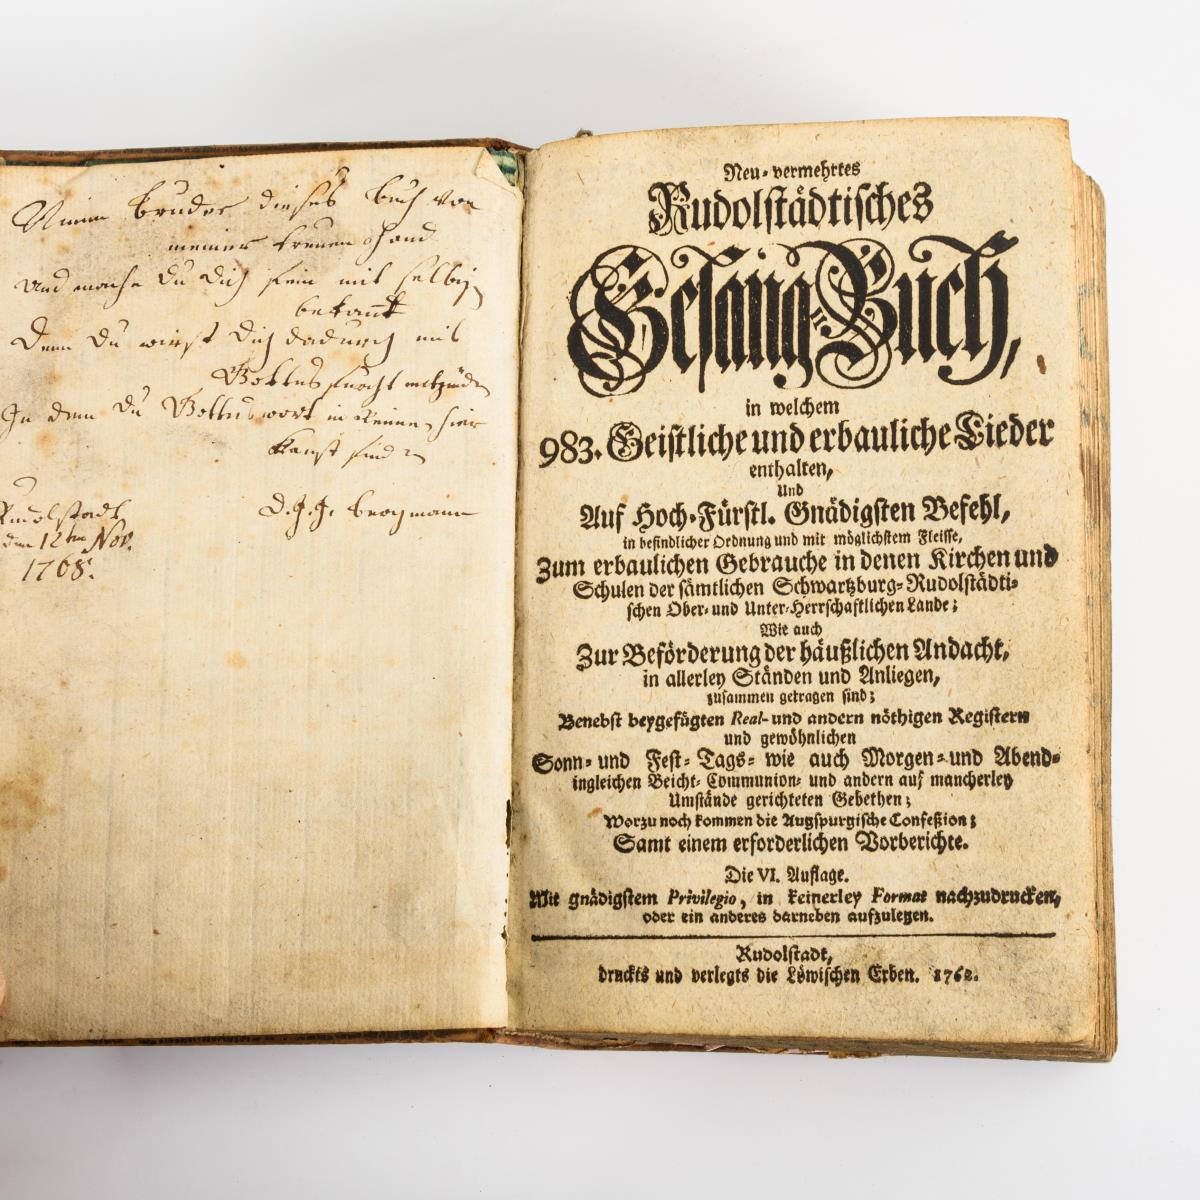 Nimm bruder dieses buch von
meiner treuen Hand
und mache du dich fein mit selbigen
bekannt
Denn du wirst dich dadurch mit
Gottes furcht
In dem du Gottes wort in hier
kanst finden
Rudolstadt
den 12ten Nov.
1768.
D. J. J.
Neu-vermehrtes
Rudolstädtisches
Gesang-Buch,
in welchem
983. Geistliche und erbauliche Lieder
enthalten,
Und
Auf Hoch-Fürstl. Gnädigsten Befehl,
in befindlicher Ordnung und mit möglichstem Fleisse,
Zum erbaulichen Gebrauche in denen Kirchen und
Schulen der sämtlichen Schwartzburg-Rudolstädti-
schen Ober- und Unter-Herrschaftlichen Lande;
Wie auch
Zur Beförderung der häußlichen Andacht,
in allerley Ständen und Anliegen,
zusammen getragen sind;
Benebst beygefügten Real- und andern nöthigen Registern
und gewöhnlichen
Sonn- und Fest- Tags- wie auch Morgen- und Abend-
ingleichen Beicht- Communion- und andern auf mancherley
Umstände gerichteten Gebethen;
Worzu noch kommen die Augspurgische Confeßion;
Samt einem erforderlichen Vorberichte.
Die VI. Auflage.
Mit gnädigstem Privilegio, in keinerley Format nachzudrucken,
oder ein anderes darneben aufzulegen.
Rudolstadt,
druckts und verlegts die Löwischen Erben. 1762.